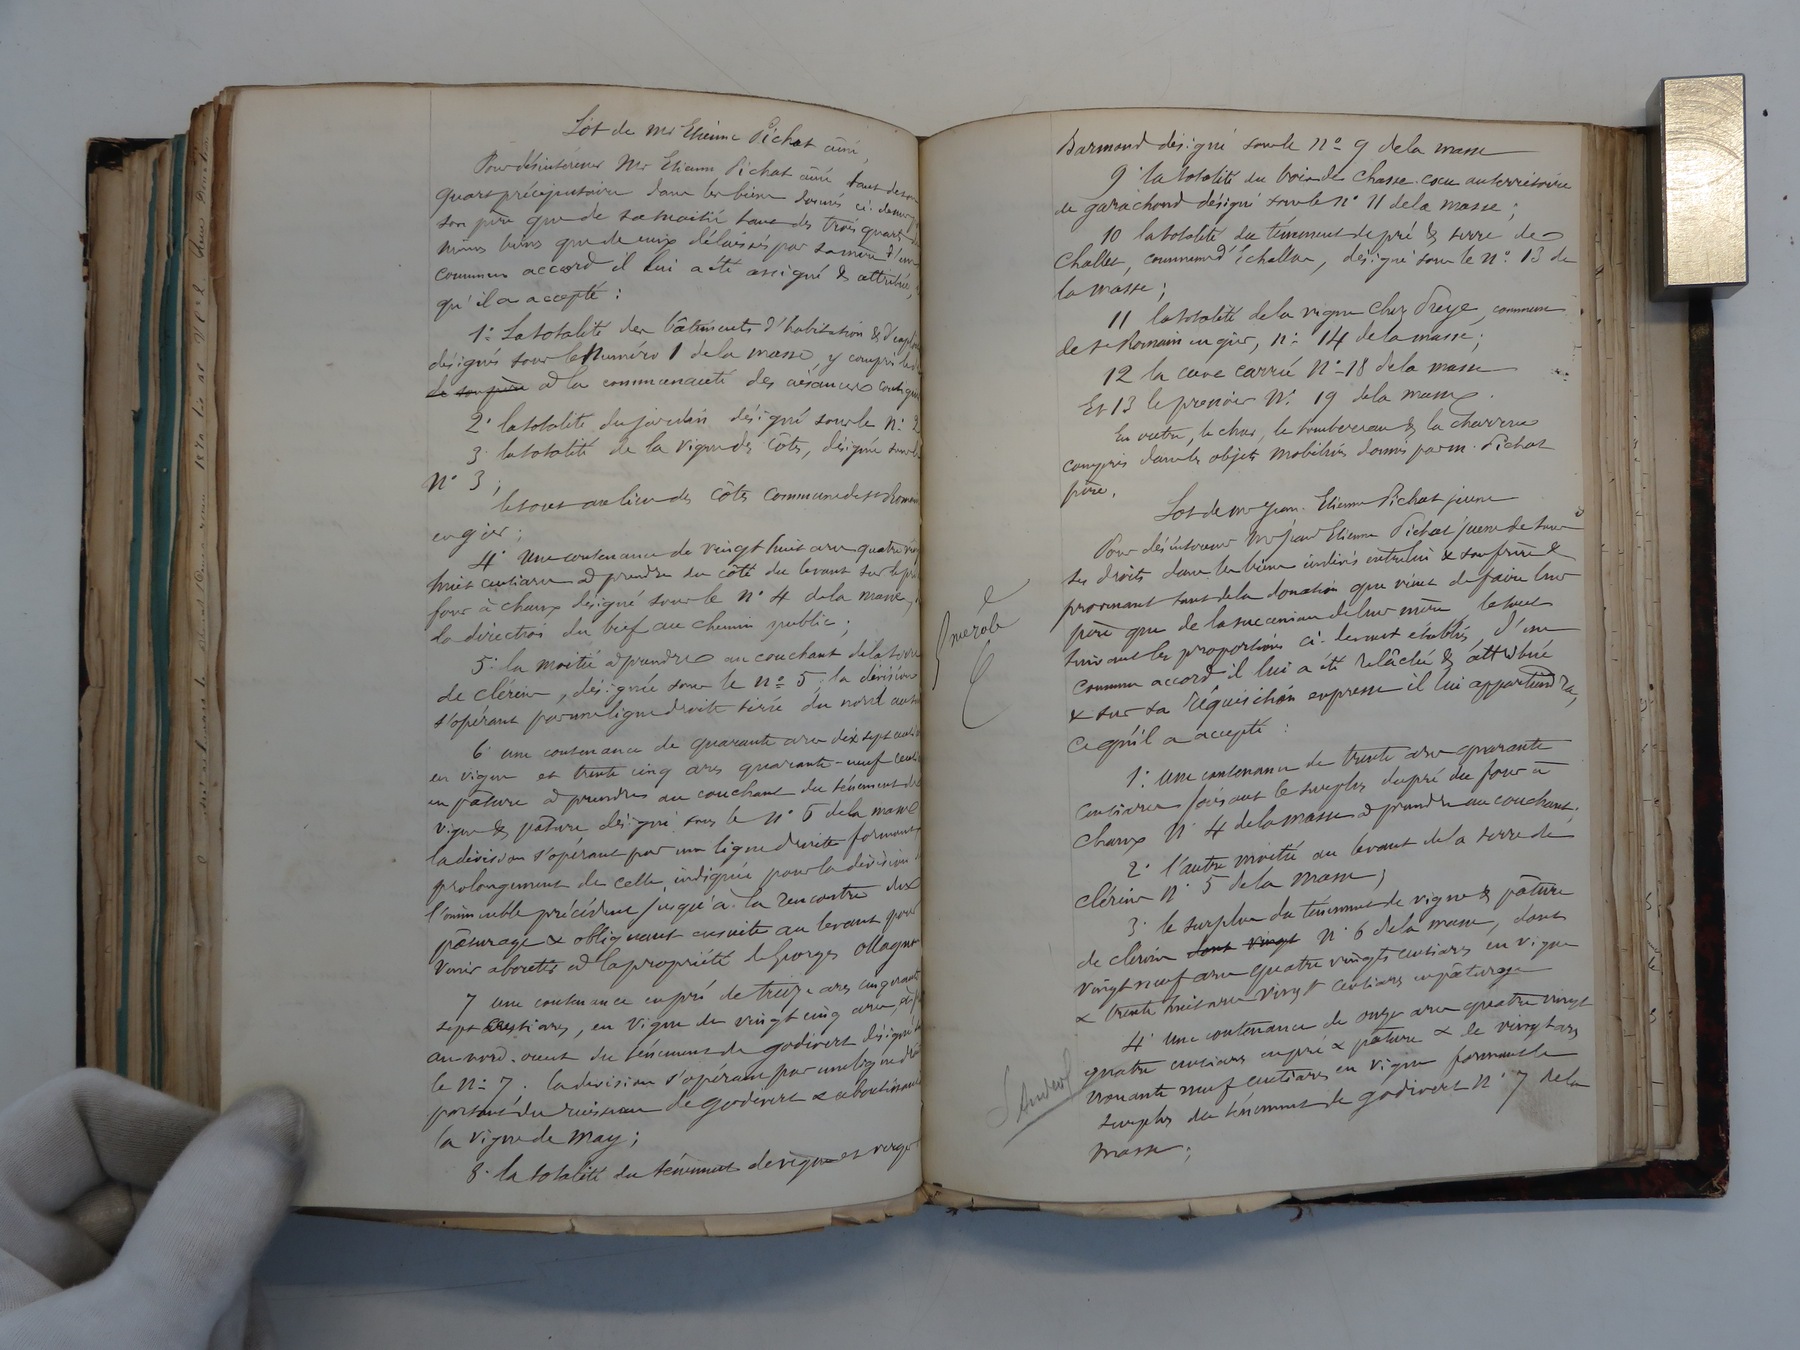 Lot de Mr Etienne Pichat ainé,
Pour désintéresser Mr Etienne Pichat ainé tant de son
quart préciputaire dans les biens donnés ci-devant
son père que de sa moitié dans des trois quarts
mêmes biens que de ceux délaissés par sa mère d'un
commun accord il lui a été assigné & attribué,
qu'il a accepté :
1º La totalité des bâtiments d'habitation & d'
désignés sous le Numéro 1 de la masse, y compris
de son père et la communauté des aisances
2º la totalité du jardin désigné sous le Nº 2
3º la totalité de la vigne des Côtes, désignée sous le
Nº 3 ;
le tout au lieu des Côtes commune de St Romain
en gier ;
4º Une contenance de vingt huit ares quatre vingt
huit centiares à prendre du côté du levant sur le pré
four à chaux désigné sous le Nº 4 de la masse,
la direction du bief au chemin public ;
5º la moitié à prendre au couchant de la terre
de clérieu, désignée sous le Nº 5 ; la division
s'opérant par une ligne droite tirée du nord au
6º une contenance de quarante ares dix sept
en vigne et trente cinq ares quarante-neuf
en pâture à prendre au couchant du ténement de
vigne & pâture désigné sous le Nº 6 de la masse
la division s'opérant par une ligne droite formant
prolongement de celle indiquée pour la division
l'immeuble précédent jusqu'à la rencontre du
pâturage & obliquant ensuite au levant pour
venir aboutir à la propriété de Georges Ollagnier
7 une contenance en pré de treize ares cinquante
sept centiares, en vigne de vingt cinq ares,
au nord-ouest du ténement de godivert désigné
le Nº 7. la division s'opérant par une ligne
partant du ruisseau de Godivert & aboutissant
la vigne de May ;
8º la totalité du ténement de vigne et verger
Barmond désigné sous le Nº 9 de la masse
9º la totalité du bois de Chasse-cocu au territoire
de garachond désigné sous le nº 11 de la masse ;
10 la totalité du ténement de pré & terre de
Challet, commune d'échallas, désigné sous le Nº 13 de
la masse ;
11 la totalité de la vigne Chez Freye, commune
de St Romain en gier, nº 14 de la masse ;
12 la cuve carrée Nº 18 de la masse
Et 13 le pressoir Nº 19 de la masse.
En outre, le char, le tombereau & la charrue
compris dans les objets mobiliers donnés par M. Pichat
père.
Lot de mr Jean-Etienne Pichat jeune
Pour désintéresser Mr Jean Etienne Pichat jeune de tous
ses droits dans les biens indivis entre lui & son frère &
provenant tant de la donation que vient de faire leur
père que de la succession de leur mère, le tout
suivant les proportions ci-devant établies, d'un
commun accord il lui a été relâché & attribué
& sur sa réquisition expresse il lui appartiendra,
ce qu'il a accepté :
1º une contenance de trente ares quarante
centiares faisant le surplus du pré du four à
Chaux Nº 4 de la masse à prendre au couchant ;
2º l'autre moitié au levant de la terre de
clérieu Nº 5 de la masse ;
3º le surplus du ténement de vigne & pâture
de clérieu dont vingt Nº 6 de la masse, dont
vingt neuf ares quatre vingts centiares en vigne
& trente huit ares vingt centiares en pâturage
4º une contenance de onze ares quatre vingt
quatre centiares en pré & pâture & de vingt ares
nonante neuf centiares en vigne formant le
surplus du ténement de godivert Nº 7 de la
masse ;